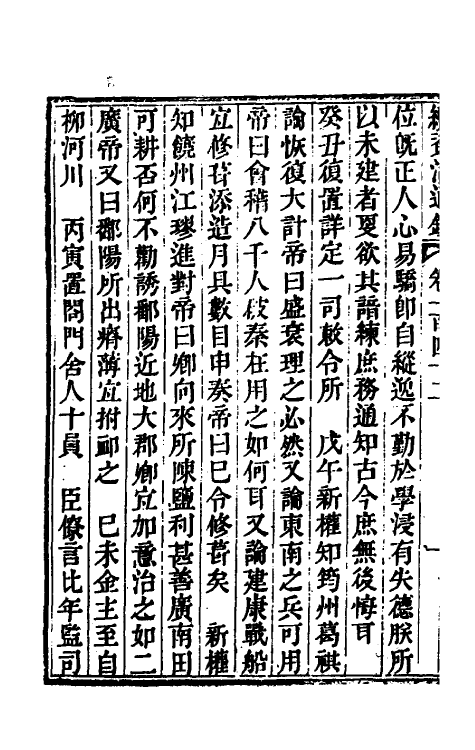 續資治通鑑 卷一百四十二
位既正人心易驕即自縱逸不勤於學浸有失德朕所
以未建者更欲其諳練庶務通知古今庶無後悔耳
癸丑復置詳定一司敕令所 戊午新權知筠州葛祺
論恢復大計帝曰盛衰理之必然又論東南之兵可用
帝曰會稽八千人破秦在用之如何耳又論建康戰船
宜修葺添造月具數目申奏帝曰已令修葺矣 新權
知饒州江璆進對帝曰卿向來所陳鹽利甚善廣南田
可耕否何不勸誘鄱陽近地大郡卿宜加意治之如二
廣帝又曰鄱陽所出瘠薄宜拊卹之 己未金主至自
柳河川 丙寅置閤門舍人十員 臣僚言比年監司